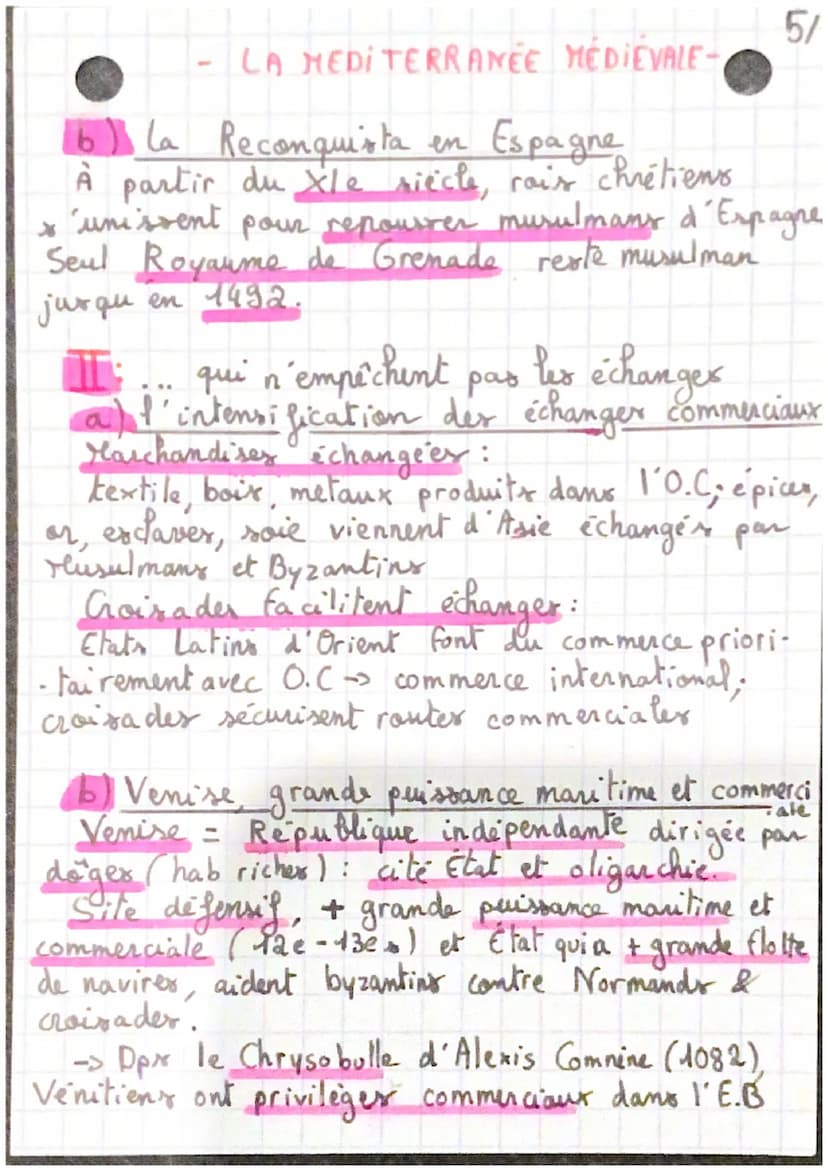 5/
- LA MEDITERRANÉE MÉDIÉVALE -
b) La Reconquista en Espagne
À partir du XIe siècle, rois chrétiens
s'unissent pour repousser musulmans d'Espagne
Seul Royaume de Grenade reste musulman
jusqu'en 1492.
II: ... qui n'empêchent pas les échanges
a) l'intensification des échanges commerciaux
Marchandises échangées :
textile, bois, metaux produits dans l'O.C; épices,
or, esclaves, soie viennent d'Asie échangés par
Musulmans et Byzantins
Croisades facilitent échanges :
Etats Latins d'Orient font du commerce priori-
-tairement avec O.C → commerce international;
croisades sécurisent routes commerciales
b) Venise, grande puissance maritime et commerci
ale
Venise = République indépendante dirigée par
dôges (hab riches) : cité État et oligarchie.
Site défensif, + grande puissance maritime et
commerciale (12e-13e s) et État qui a + grande flotte
de navires, aident byzantins contre Normands &
croisades.
-> Dps le Chrysobulle d'Alexis Comnène (1082),
Vénitiens ont privilèges commerciaux dans l'E.B